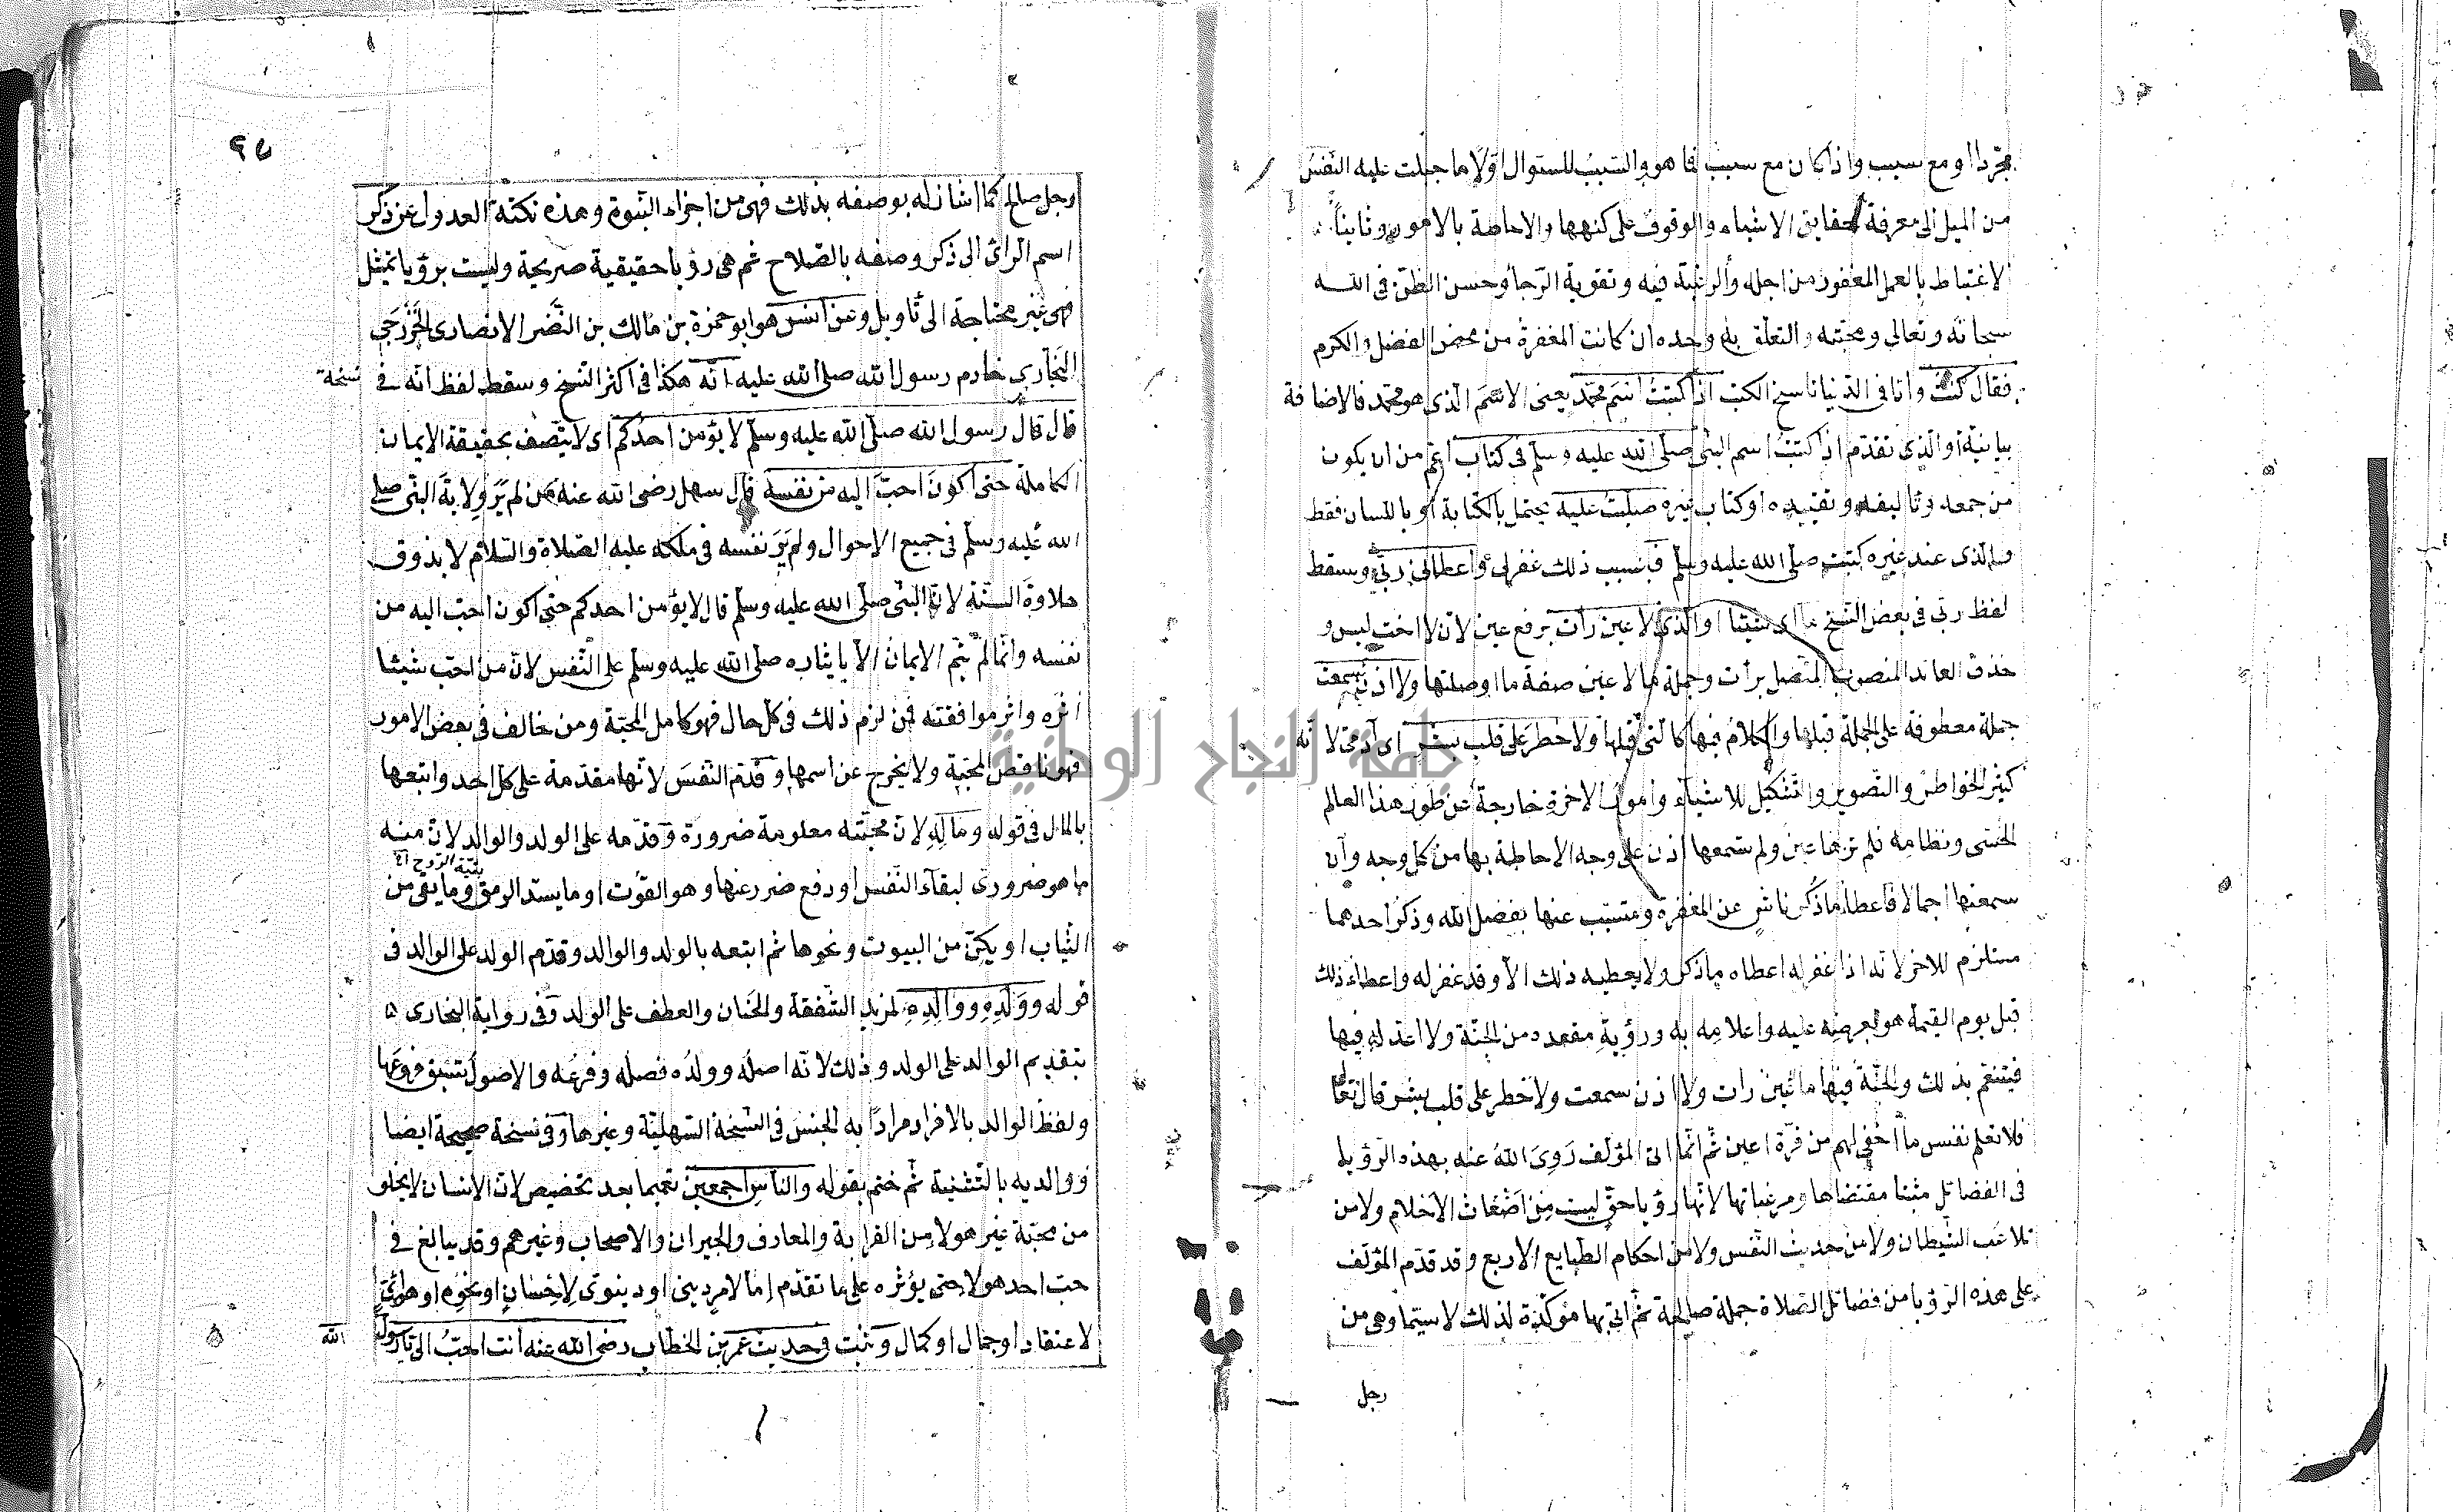 مجردا او مع سبب واذا كان مع سبب فما هو والسبب للسؤال اولا ما جبلت عليه النفس
من الميل الى معرفة حقايق الاشياء والوقوف على كنهها والاحاطة بالامور وثانيا
الاغتباط بالعمل المغفور من اجله والرغبة فيه وتقوية الرجا وحسن الظن في الله
سبحانه وتعالى ومحبته والتعلق به وحده ان كانت المغفرة من محض الفضل والكرم
فقال كنت وانا في الدنيا ناسخ الكتب اذا كتبت اسم محمد يعنى الاسم الذي هو محمد فالاضافة
بيانية او الذي تقدم اذا كتبت اسم النبي صلى الله عليه وسلم في كتاب اعم من ان يكون
من جمعه وتاليفه وتقييده او كتاب غيره صليت عليه يحتمل بالكتابة او باللسان فقط
والذى عند غيره كتبت صلى الله عليه وسلم فبسبب ذلك غفر لي واعطاني ربي وسقط
لفظ ربي في بعض النسخ ما اى شيئا او الذي لا عين رات برفع عين لان لا اخت ليس و
حذف العائد المنصوب المتصل برأت وجملة ما لا عين صفة ما او صلتها ولا اذن سمعت
جملة معطوفة على الجملة قبلها والكلام فيها كالتي قبلها ولا خطر على قلب بشر اى آدمى لانه
كثير الخواطر والتصوير والتشكيل للاشياء وامور الاخرة خارجة عن طور هذا العالم
الحسى ونظامه فلم ترها عين ولم تسمعها اذن على وجه الاحاطة بها من كل وجه وان
سمعتها اجمالا فاعطاء ما ذكر ناش عن المغفرة ومتسبب عنها بفضل الله وذكر احدهما
مستلزم للاخر لانه اذا غفر له اعطاه ما ذكر ولا يعطيه ذلك الا وقد غفر له واعطاء ذلك
قبل يوم القيمة هو بعرضه عليه واعلامه به ورؤية مقعده من الجنة ولا اعد له فيها
فيتنعم بذلك والجنة فيها ما لا عين رات ولا اذن سمعت ولا خطر على قلب بشر قال تعالى
فلا تعلم نفس ما اخفى لهم من قرة اعين ثم انما اتى المؤلف رضى الله عنه بهذه الرؤيا
في الفضائل مثبتا مقتضاها ومرغباتها لانها رؤيا حق ليست من اضغاث الاحلام ولا من
تلاعب الشيطان ولا من حديث النفس ولا من احكام الطبايع الاربع وقد قدم المؤلف
على هذه الرؤيا من فضائل الصلاة جملة صالحة ثم اتى بها مؤكدة لذلك لا سيما وهي من
رجل
٩٧
رجل صالح كما اشار له بوصفه بذلك فهي من اجزاء النبوة وهذه نكتة العدول عن ذكر
اسم الرائ الى ذكر وصفه بالصلاح ثم هي رؤيا حقيقية صريحة وليست برؤيا تمثل
فهى غير محتاجة الى تاويل وعن انس هو ابو حمزة بن مالك بن النضر الانصارى الخزرجي
النجارى خادم رسول الله صلى الله عليه انه هكذا في اكثر النسخ وسقط لفظ انه في نسخة
قال قال رسول الله صلى الله عليه وسلم لا يؤمن احدكم اى لا يتصف بحقيقة الايمان
الكاملة حتى اكون احب اليه من نفسه قال سهل رضى الله عنه من لم ير ولاية النبي صلى
الله عليه وسلم في جميع الاحوال ولم ير نفسه في ملكه عليه الصلاة والسلام لا يذوق
حلاوة السنة لان النبي صلى الله عليه وسلم قال لا يؤمن احدكم حتى اكون احب اليه من
نفسه وانما لم يتم الايمان الا بايثاره صلى الله عليه وسلم على النفس لان من احب شيئا
اثره واثر موافقته فمن لزم ذلك في كل حال فهو كامل المحبة ومن خالف في بعض الامور
فهو ناقص المحبة ولا يخرج عن اسمها وقدم النفس لانها مقدمة على كل احد واتبعها
بالمال في قوله وماله لان محبته معلومة ضرورة وقدمه على الولد والوالد لان منه
بقية الروح
ما هو ضرورى لبقاء النفس او دفع ضرر عنها وهو القوت او ما يسد الرمق وما يقى من
الثياب او يكن من البيوت ونحوها ثم اتبعه بالولد والوالد وقدم الولد على الوالد في
قوله وولده ووالده لمزيد الشفقة والحنان والعطف على الولد وفى رواية البخارى
بتقديم الوالد على الولد وذلك لانه اصله وولده فصله وفرعه والاصول تسبق فروعها
ولفظ الوالد بالافراد مرادا به الجنس في النسخة السهلية وغيرها وفى نسخة صحيحة ايضا
ووالديه بالتثنية ثم ختم بقوله والناس اجمعين تعميما بعد تخصيص لان الانسان لا يخلو
من محبة غير هولا من القرابة والمعارف والجيران والاصحاب وغيرهم وقد يبالغ في
حب احد هولا حتى يؤثره على ما تقدم اما لامر دينى او دينوى لاحسان او نحوه او هوائ
لاعتقاد او جمال او كمال وثبت في حديث عمر بن الخطاب رضى الله عنه انت احب الى يا رسول الله
جامعة النجاح الوطنية